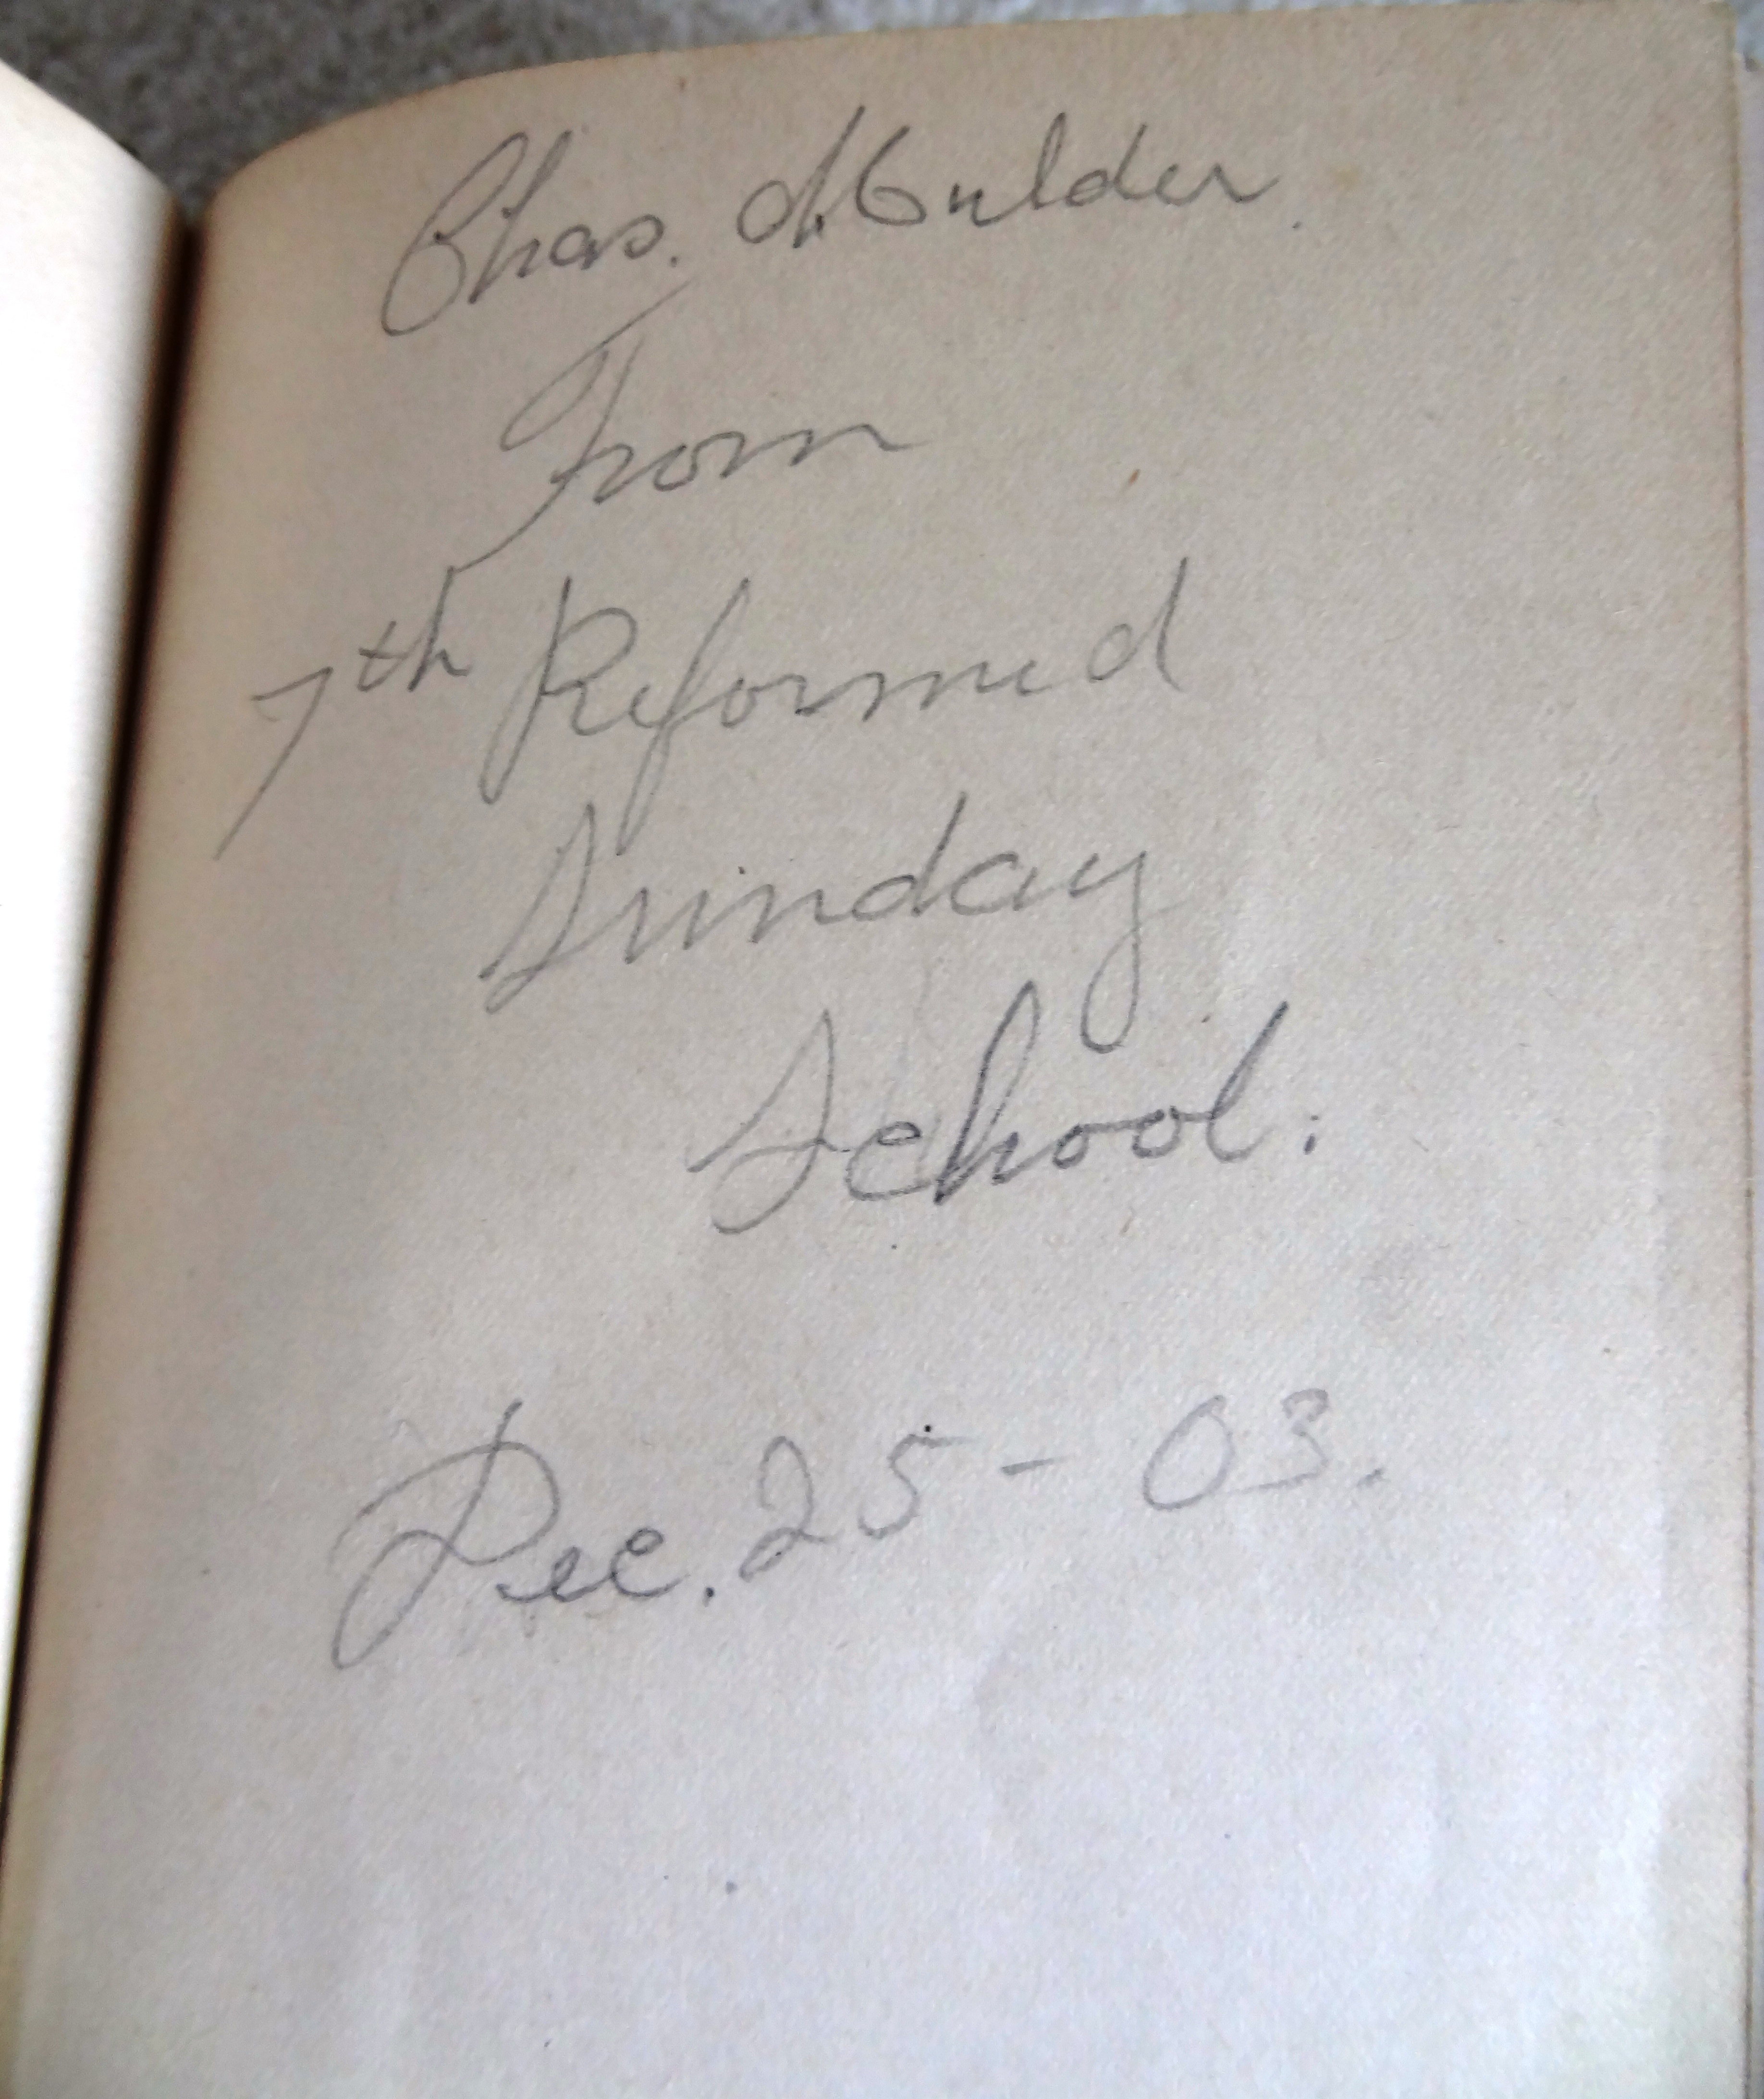 Chas. Mulder.
From
7th Reformed
Sunday
School.
Dec. 25 - 03.